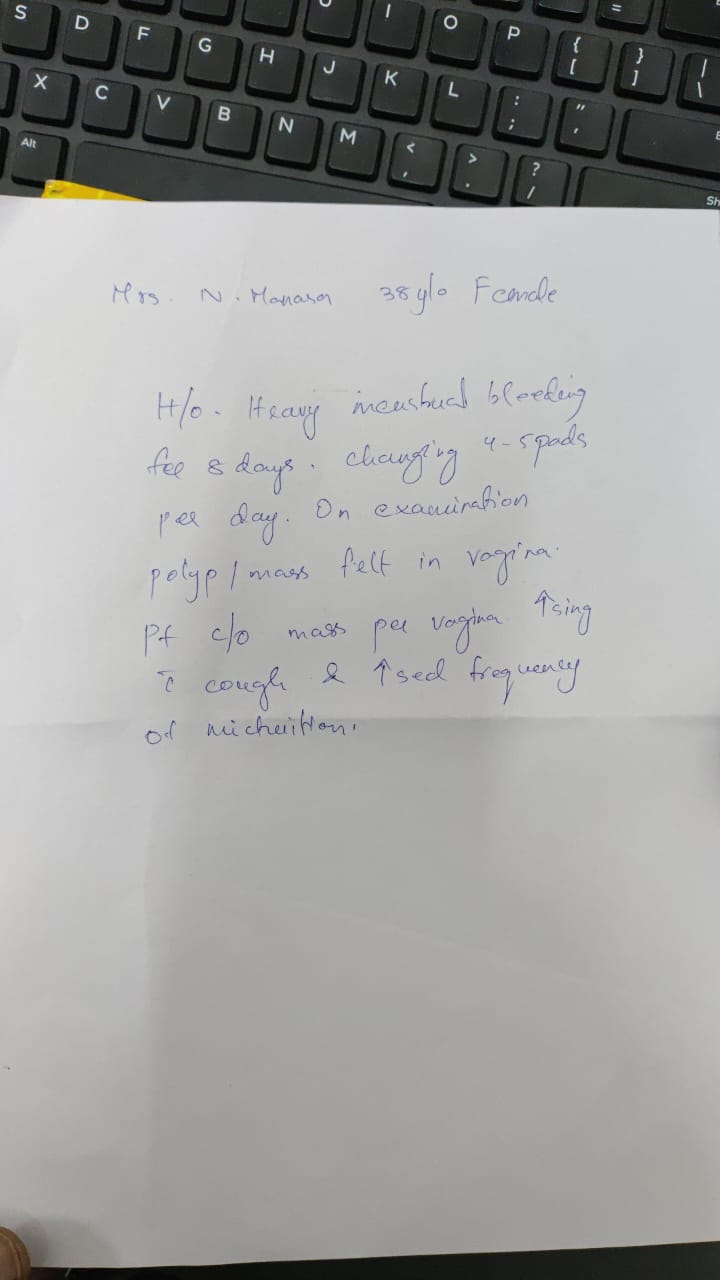 S D F G H J K L : ; " ' 
I O P { [ } ] | \ =
X C V B N M < , > . ? /
Alt
Sh
Mrs. N. Manasa 38 y/o Female
H/o. Heavy menstrual bleeding
for 8 days. changing 4-5 pads
per day. On examination
polyp / mass felt in vagina.
Pt c/o mass per vagina ↑sing
c̄ cough & ↑sed frequency
of micturition.